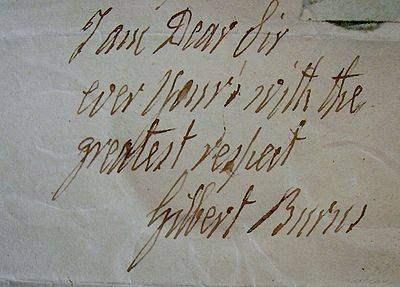 I am Dear Sir
ever your's with the
greatest respect
Gilbert Burns